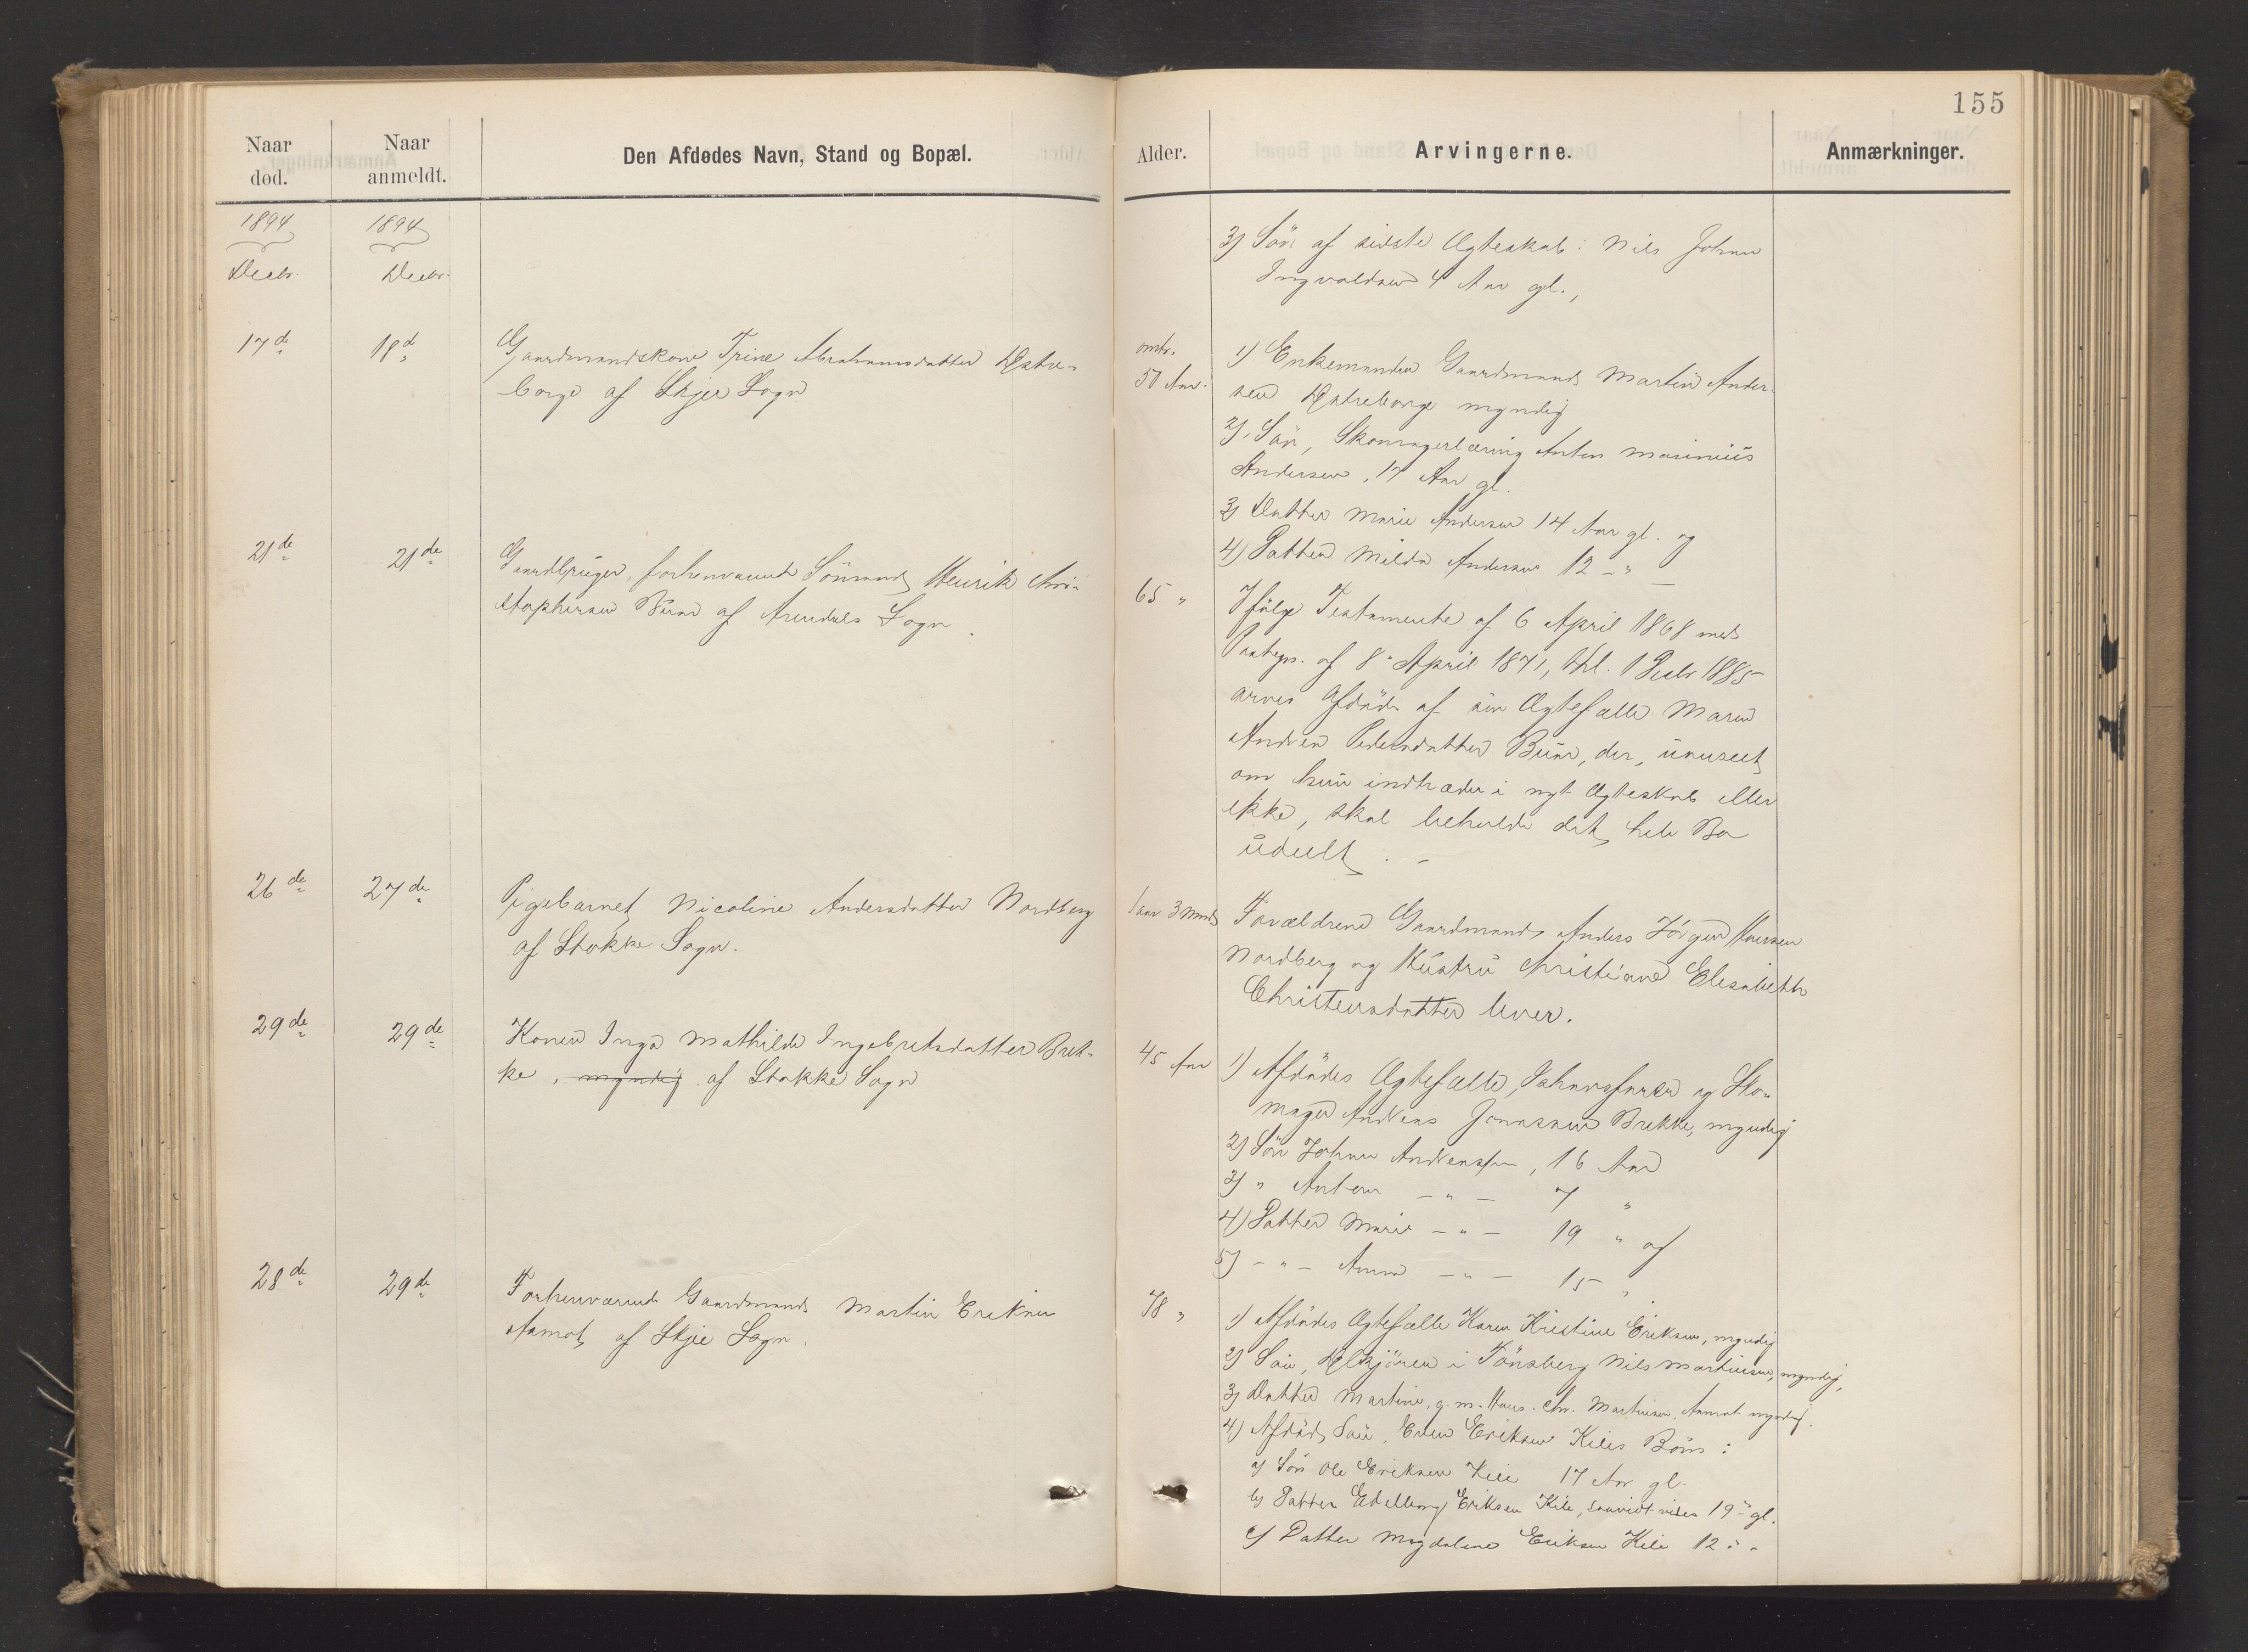 155
Naar død.
Naar anmeldt.
Den Afdødes Navn, Stand og Bopæl.
Alder.
Arvingerne.
Anmærkninger.
1894
1894
Decbr.
Decbr.
3) Søn af sidste Ægteskab: Nils Johan
Ingvaldsen 4 Aar gl.,
17de
18de
Gaardmandskone Trine Abrahamsdatter Østre-
borge af Skjee Sogn
omtr.
50 Aar.
1) Enkemanden Gaardmand Martin Ander-
sen Østreborge myndig
2) Søn, Skomagerlæring Anton Marinius
Andersen, 17 Aar gl.
3) Datter Marie Andersen 14 Aar gl. og
4) Datter Milda Andersen 12 - " -
21de
21de
Gaardbruger, forhenværende Sømand Henrik Chri-
stophersen Buer af Arendals Sogn.
65 "
Ifølge Testamente af 6 April 1868 med
Paategn. af 8 April 1871, thl. 1 Decbr 1885
arves Afdøde af sin Ægtefælle Maren
Andrea Pedersdatter Buer, der, uanseet
om hun indtræder i nyt Ægteskab eller
ikke, skal beholde det hele Bo
udeelt. -
26de
27de
Pigebarnet Nicoline Andersdatter Nordberg
af Stokke Sogn.
1 aar 3 Mnd
Forældrene Gaardmand Anders Jørgen Hansen
Nordberg og Hustru Christiane Elisabeth
Christensdatter lever.
29de
29de
Konen Inga Mathilde Ingebretsdatter Brek-
ke, myndig af Stokke Sogn
45 Aar
1) Afdødes Ægtefælle, og Sko-
mager Andreas Jonassen Brekke, myndig
2) Søn Johan Andreassen, 16 Aar
3) " Anton - " - 7 "
4) Datter Marie - " - 19 " og
5) - " - Anna - " - 15 "
28de
29de
Forhenværende Gaardmand Martin Eriksen
Aamot af Skjee Sogn.
78 "
1) Afdødes Ægtefælle Karen Kristine Eriksen, myndig
2) Søn, i Tønsberg Nils Martinsen, myndig,
3) Datter Martine, g. m. Hans Chr. Martinsen, Aamot myndig.
4) Afdød Søn, Even Eriksen Kiles Børn:
a) Søn Ole Eriksen Kile 17 Aar gl.
b) Datter Edelborg Eriksen Kile, saavidt vides 19 " gl.
c) Datter Magdalene Eriksen Kile 12 " "